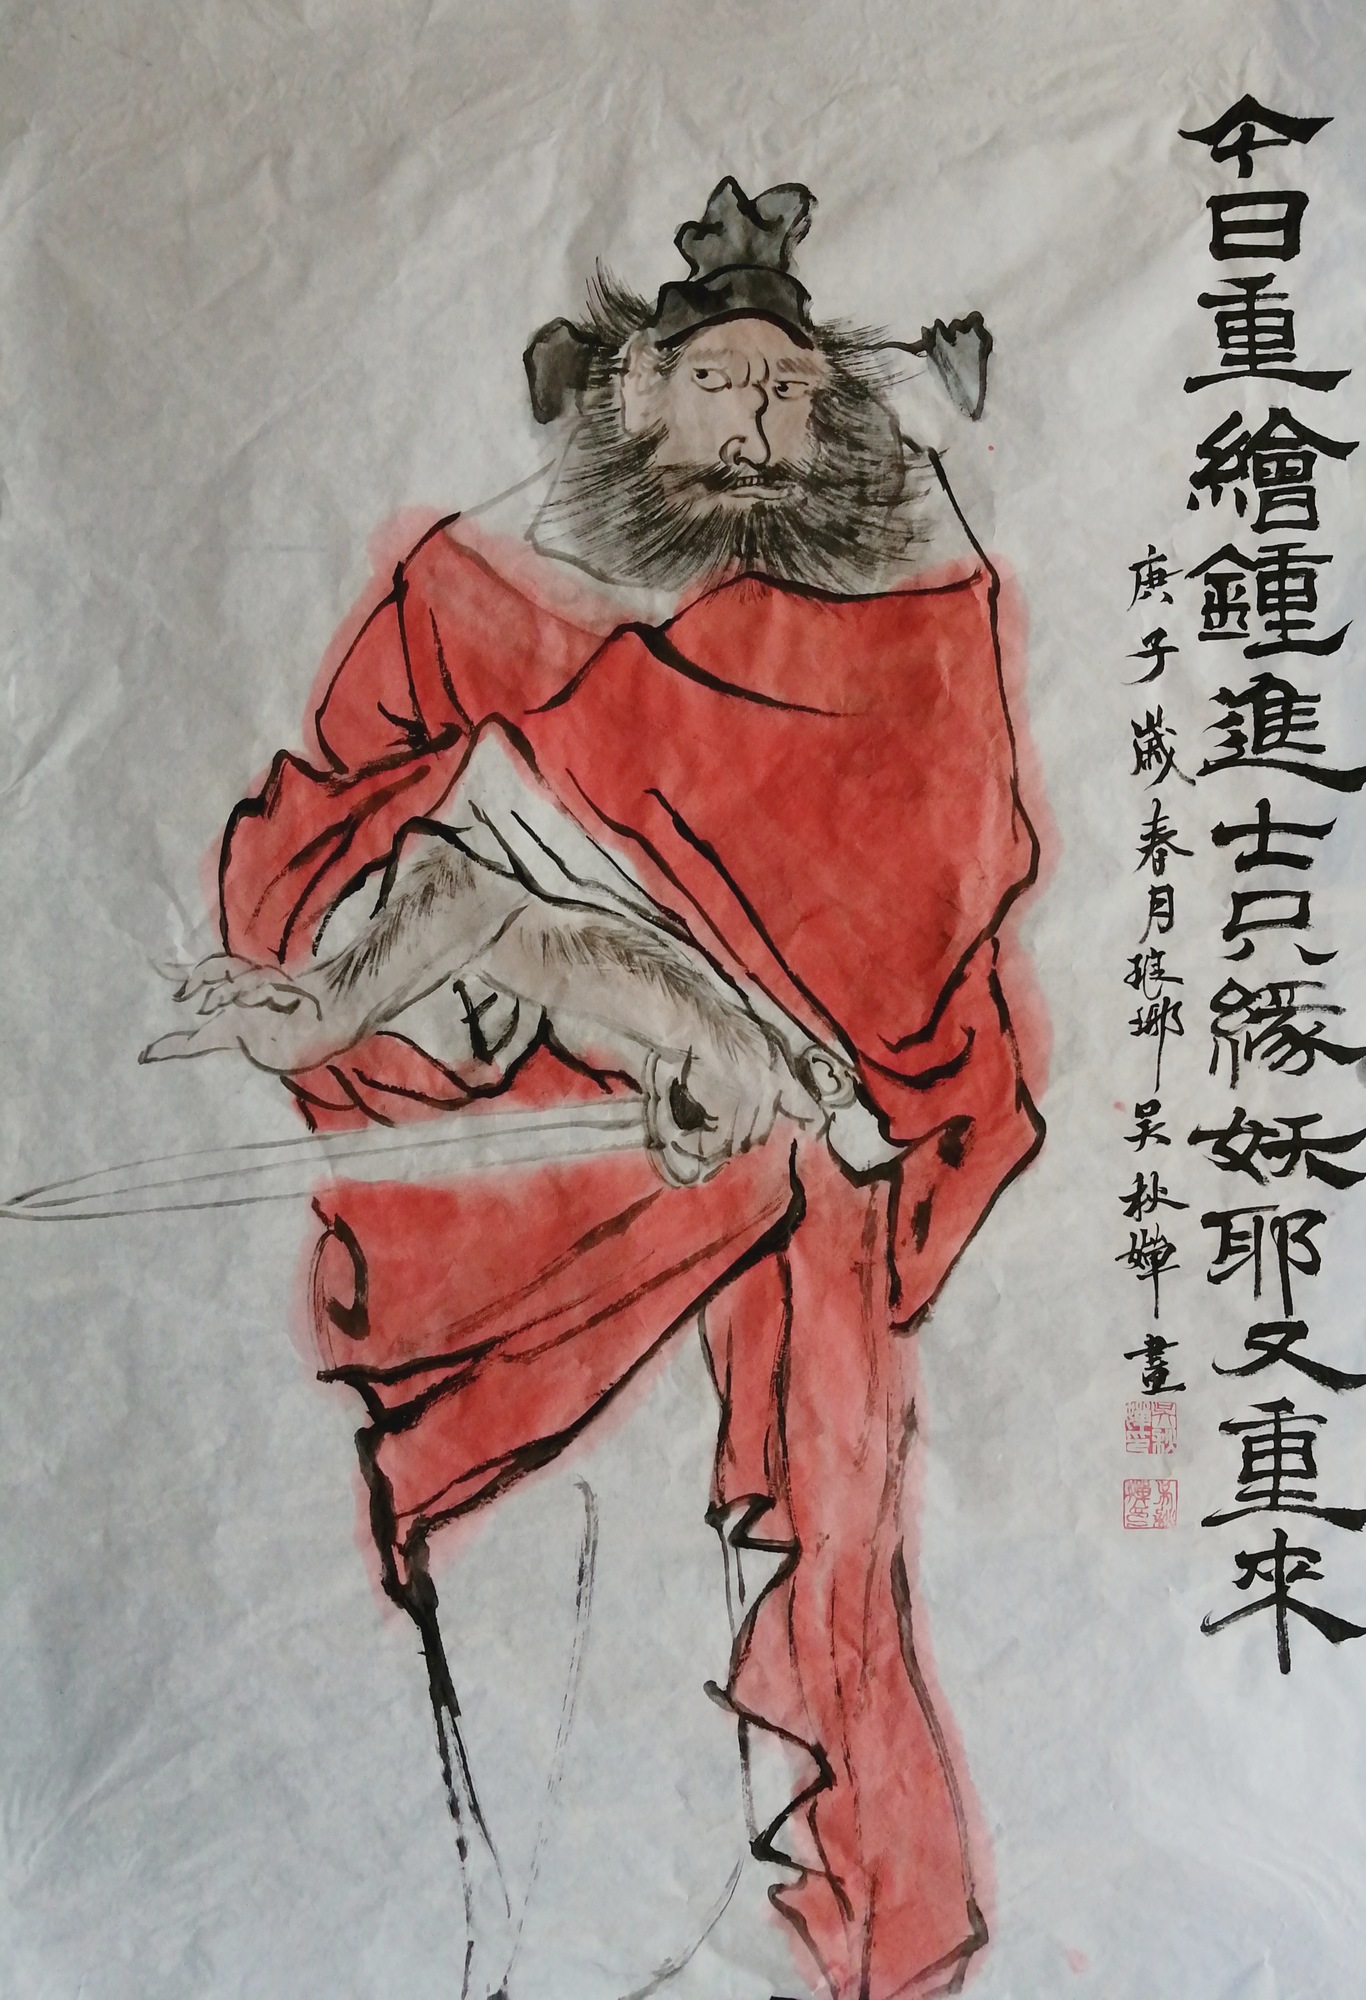 今日重繪鍾進士只緣妖耶又重來
庚子歲春月琅琊吴秋嬋畫